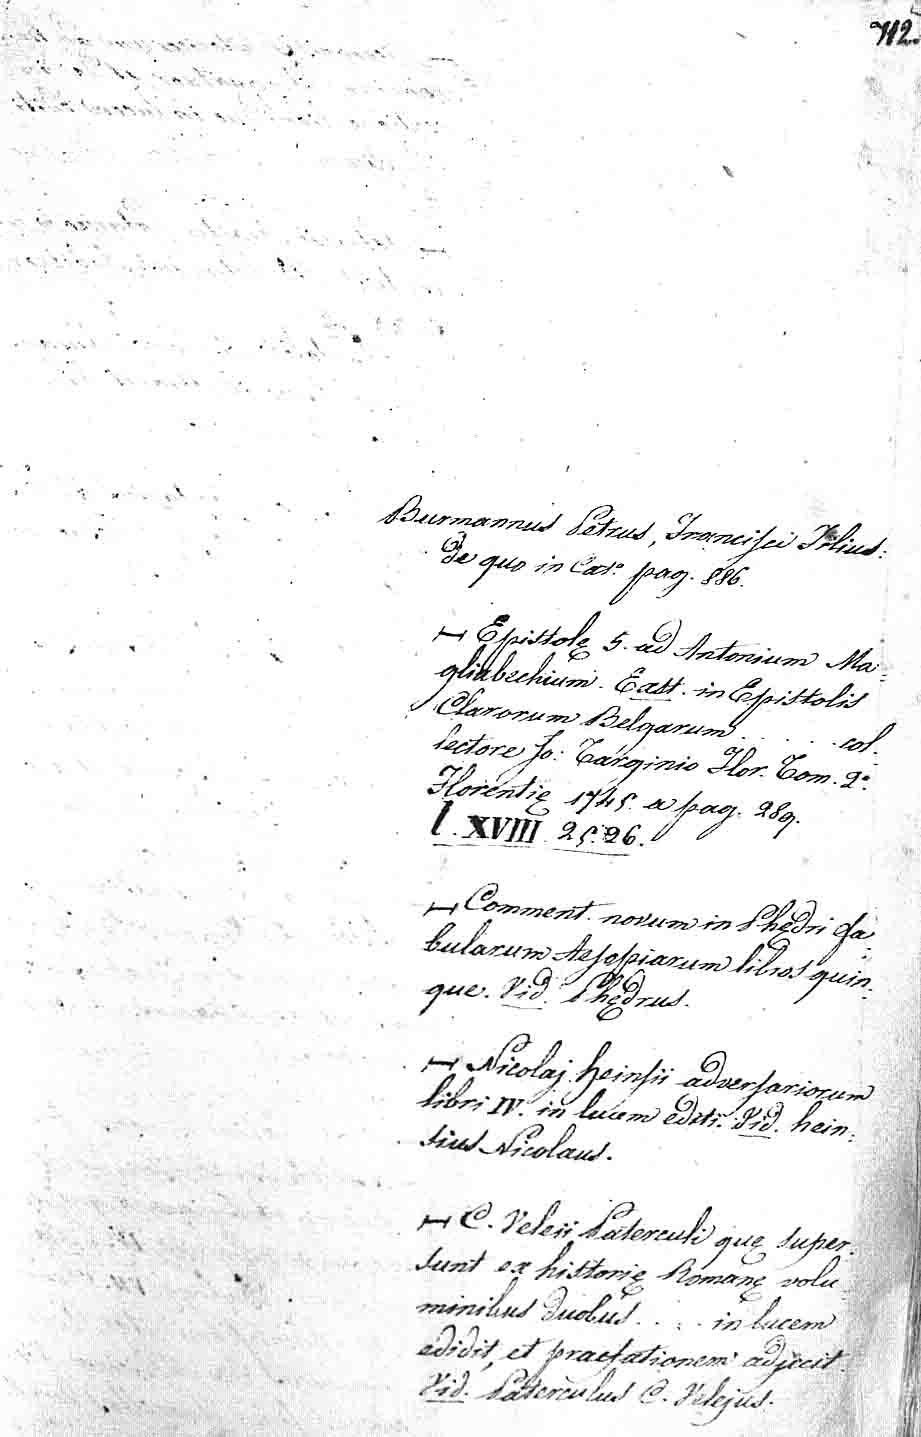 712.
Burmannus Petrus, Francisci Filius:
De quo in Cat.º pag. 886.
Epistolę 5. ad Antonium Ma=
gliabechium. Exst. in Epistolis
Clarorum Belgarum . . . . . col=
lectore Jo: Targinio Flor. Tom. 2º
Florentię 1745. a pag. 289.
l. XVIII 25.26.
Comment. novum in Phędri fa=
bularum Aesopiarum libros quin=
que. Vid. Phędrus.
Nicolaj heinsii adversariorum
libri IV. in lucem editi. Vid. hein=
sius Nicolaus.
C. Veleii Paterculi quę super=
sunt ex historię Romanę volu=
minibus duobus . . . . in lucem
edidit, et praefationem adjecit
Vid. Paterculus C. Velejus.